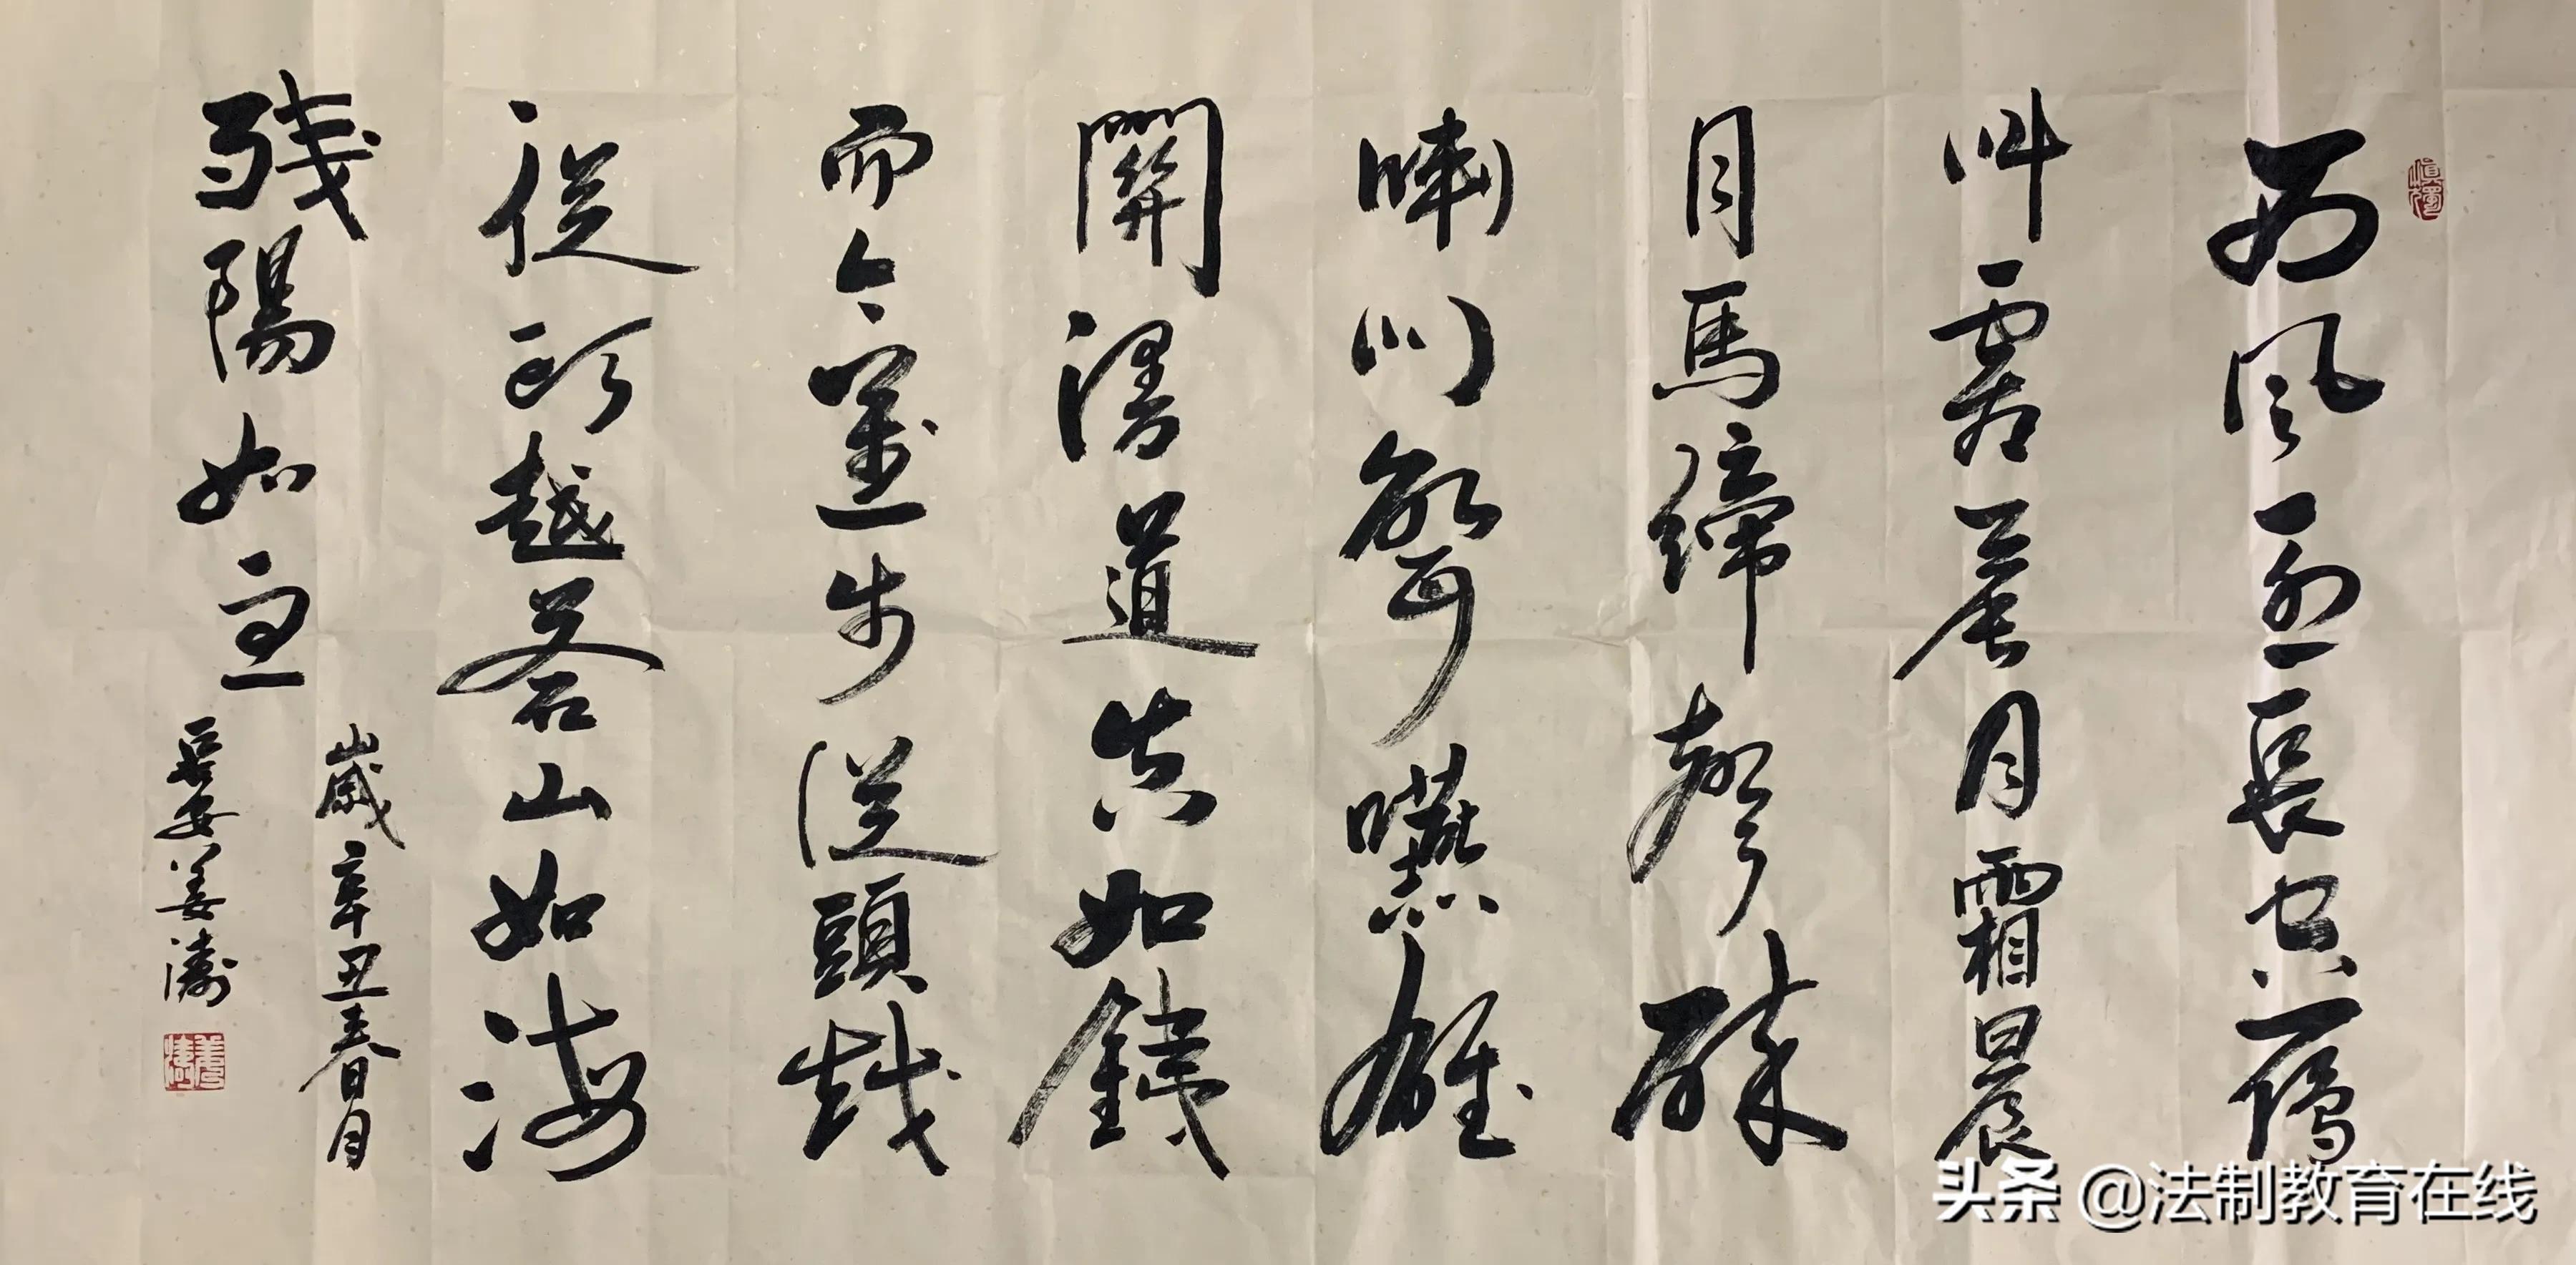 西風烈長空雁
叫霜晨月霜晨
月馬蹄聲碎
喇叭聲咽雄
關漫道真如鐵
而今邁步從頭越
從頭越蒼山如海
殘陽如血
歲辛丑春月
長安姜濤
姜濤
头条 @法制教育在线